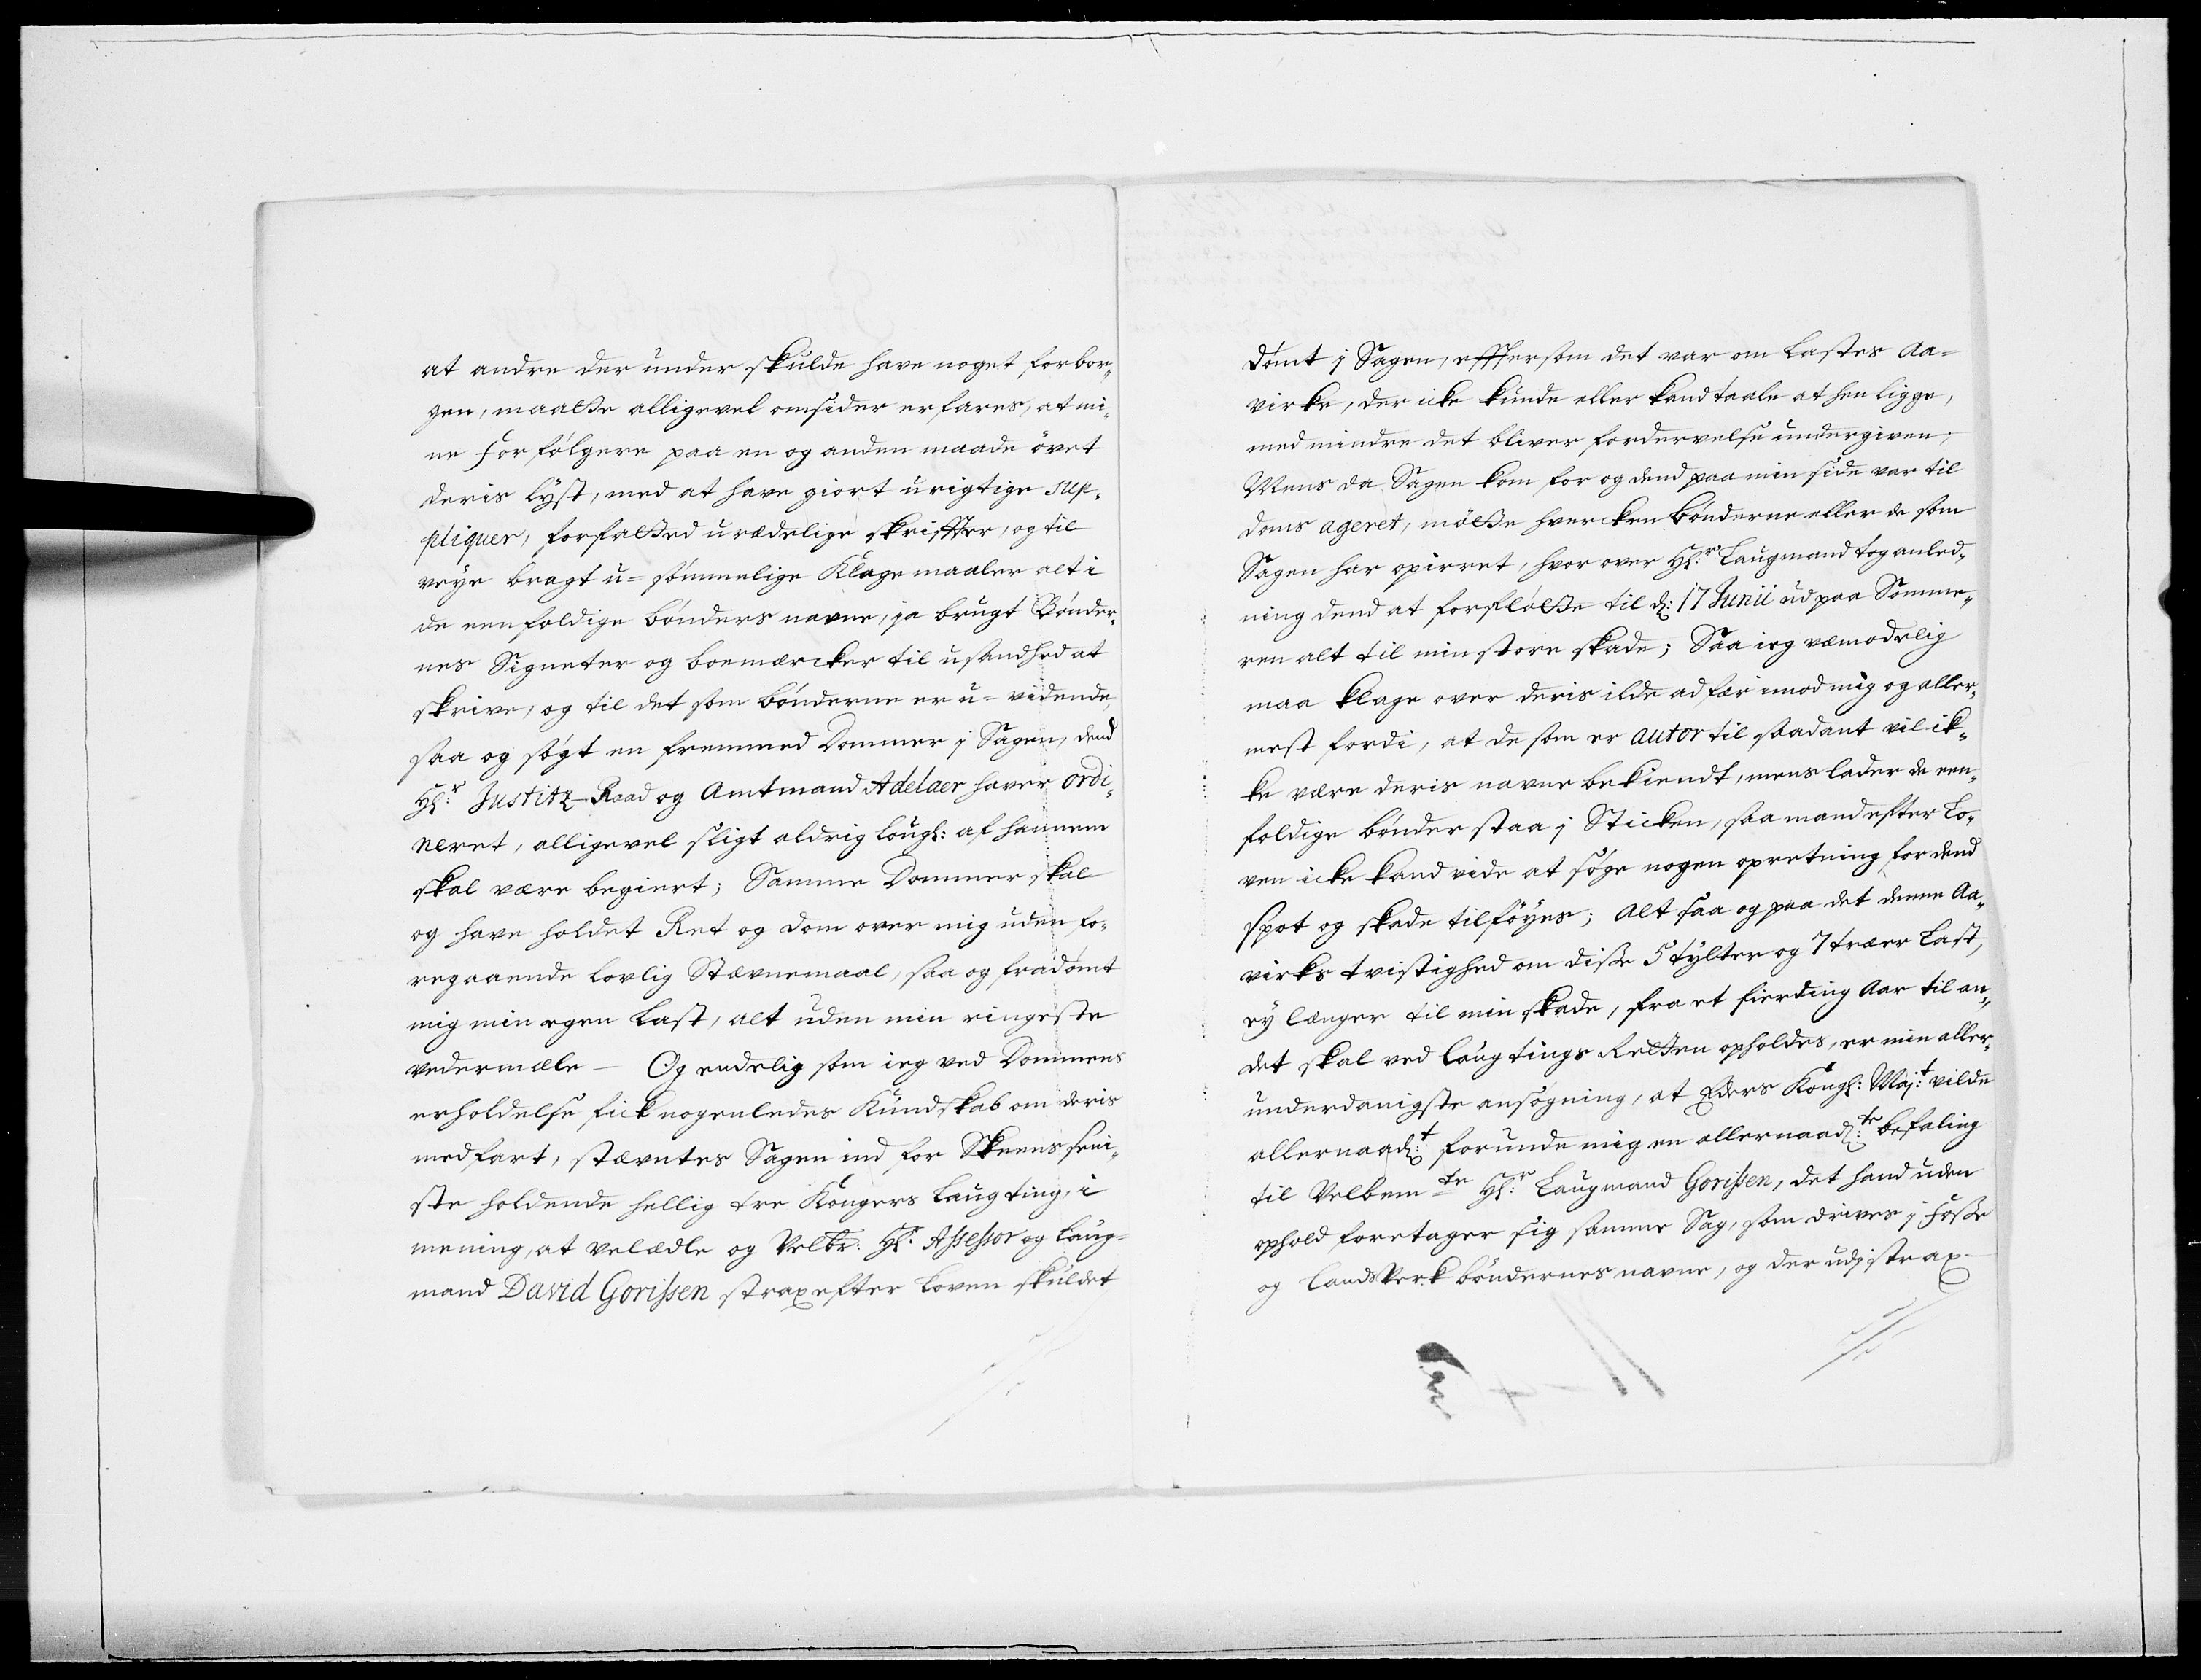 at andre der under skulde have noget forbor-
gen, maatte alligevel omsider erfares, at mi-
ne forfølgere paa en og anden maade övet
deris Lyst, med at have giort urigtige sup-
pliquer, forfatted urædelige skriffter, og til
veye bragt u=sømmelige Klagemaaler alt i
de eenfoldige bønders navne, ja brugt Bønder-
nes Signeter og boemærcker til usandhed at
skrive, og til det som bønderne er u=vidende,
saa og søgt en fremmed Dommer j Sagen, dend
Hl:r Justitz-Raad og Amtmand Adelaer haver ordi-
neret, alligevel sligt aldrig lougl: af hannem
skal være begiert; Samme Dommer skal
og have holdet Ret og dom over mig uden fo-
regaaende lovlig Stævnemaal, saa og fradømt
mig min egen Last, alt uden min ringeste
vedermæle – Og endelig som ieg ved Dommens
erholdelse fick nogenledes Kundskab om deris
medfart, stævntes Sagen ind for Skeens seni-
ste holdende hellig tre Kongers Laugting, i
mening, at velædle og Velbr: Hl:r Assessor og Laug-
mand David Gorissen strax efter Loven skuldet
dømt j Sagen, effterson det var om Lastes Aa=
virke, der icke kunde eller kand taale at hen ligge,
med mindre det bliver fordervelse undergiven;
Mens da Sagen kom for og dend paa min side var til
doms ageret, mötte hvercken Bønderne eller de som
Sagen har opirret, hvor over Hl:r Laugmand tog anled-
ning dend at forfløtte til d: 17 Junii ud paa Somme-
ren alt til min store skade; Saa ieg væmodelig
maa klage over deris ilde adfær imod mig og aller-
mest fordi, at de som er autor til saadant vil ik-
ke være deris navne bekiendt, mens lader de een-
foldige bønder staa j Sticken, saa mand efter Lo-
ven icke kand vide at søge nogen opretning for dend
spot og skade tilføyes; Alt saa og paa det denne Aa-
virks tvistighed om disse 5 tylter og 7 træer Last,
ey længer til min skade, fra et fierding Aar til an-
det skal ved laugtings Retten opholdes, er min aller-
underdanigste ansøgning, at Eders Kongl: Maj:t vilde
allernaad:t forunde mig en allernaad:te befaling
til Velbem:te Hl:r Laugmand Gorissen, det hand uden
ophold foretager sig samme Sag, som drives j Fosse
og Landsverk bøndernes navne, og der udj strax